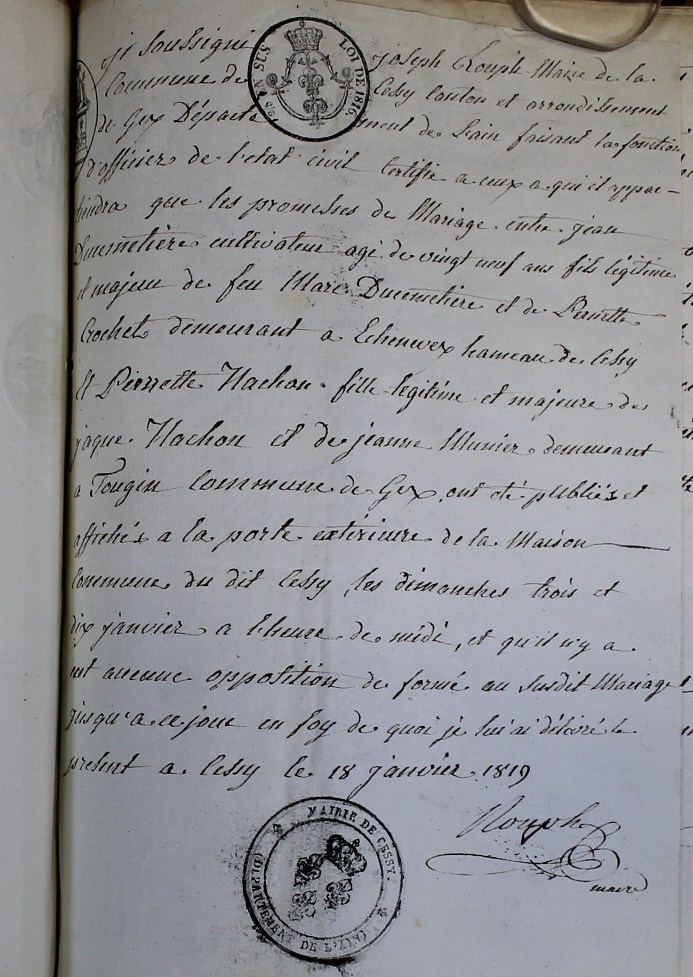 EN SUS LOI DE 1816.
je soussigné joseph Rouph Maire de la
Commune de Cessy Canton et arrondissement
de Gex Département de l'ain faisant la fonction
d'officier de l'etat civil Certifie a ceux a qui il appar-
tiendra que les promesses de Mariage entre jean
Ducimetière cultivateur agé de vingt neuf ans fils légitime
et majeur de feu Marc Ducimetière et de Pernette
Crochet demeurant a Echenevex hameau de Cessy
Et Pierrette Hachon fille legitime et majeure de
jaque Hachon et de jeanne Munier demeurant
a Tougin Commune de Gex, ont été publiés et
affichés a la porte extérieure de la Maison
Commune du dit Cessy, les dimanches trois et
dix janvier a l'heure de midi, et qu'il n'y a
eut aucune opposition de formé au susdit Mariage
jusqu'a ce jour en foy de quoi je lui ai délivré le
présent a Cessy le 18 janvier 1819
Rouph
maire
MAIRIE DE CESSY.
(DÉPARTEMENT DE L'AIN)